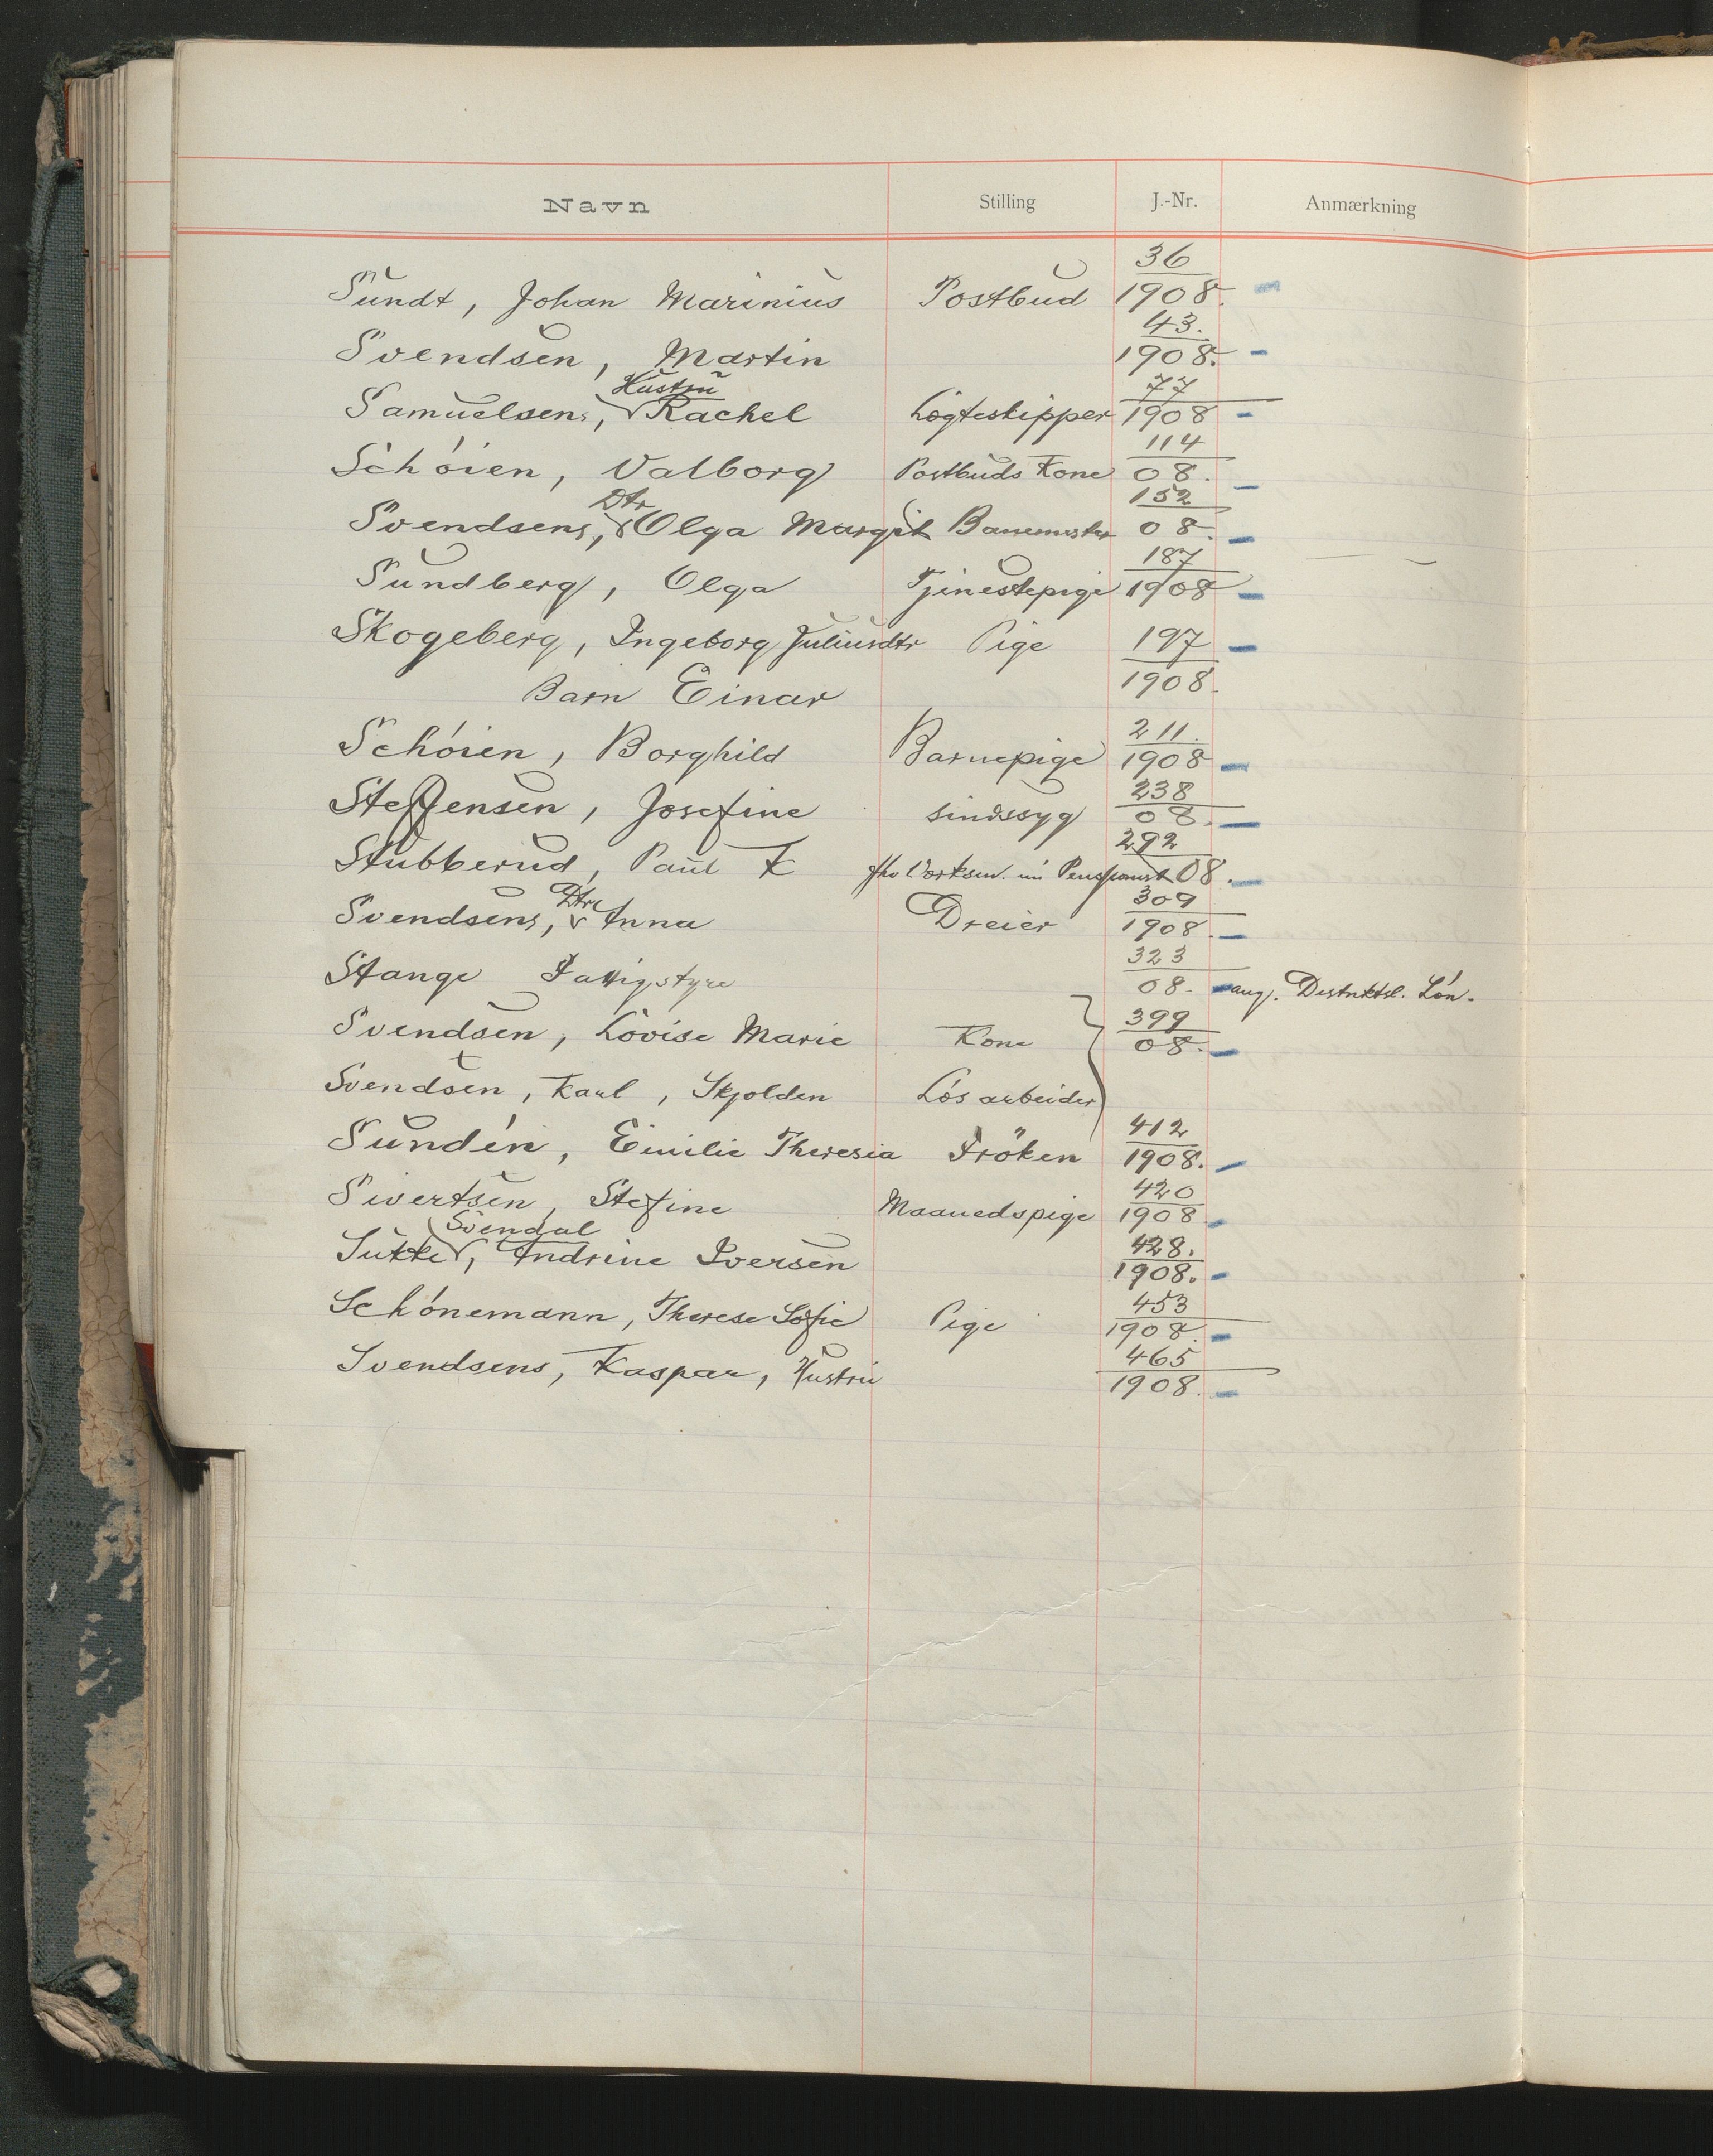 Navn Stilling J.-Nr. Anmærkning
36
Sundt, Johan Marinius Postbud 1908.
43.
Svendsen, Martin 1908.
Hustru 77
Samuelsens, Rachel Lægteskipper 1908
114
Schøien, Valborg Postbuds Kone 08.
Dtr 152
Svendsens, Olga Margit Banemester 08.
187
Sundberg, Olga Tjenestepige 1908
Skogeberg, Ingeborg Juliusdtr Pige 197
Barn Einar 1908.
211.
Schøien, Borghild Barnepige 1908
238
Steffensen, Josefine sindssyg 08.
292
Stubberud, Paul K 08.
Dtr 309
Svendsens, Anna Dreier 1908.
323
Stange Fattigstyre 08. ang. Distriktsl. Løn.
399
Svendsen, Lovise Marie Kone 08.
Svendsen, Karl, Skjolden Løsarbeider
412
Sundén, Emilie Theresia Fröken 1908.
420
Sivertsen, Stefine Maanedspige 1908.
Svendal 428.
Sukke, Andrine Iversen 1908.
453
Schønemann, Therese Sofie Pige 1908.
465
Svendsens, Kaspar, Hustru 1908.